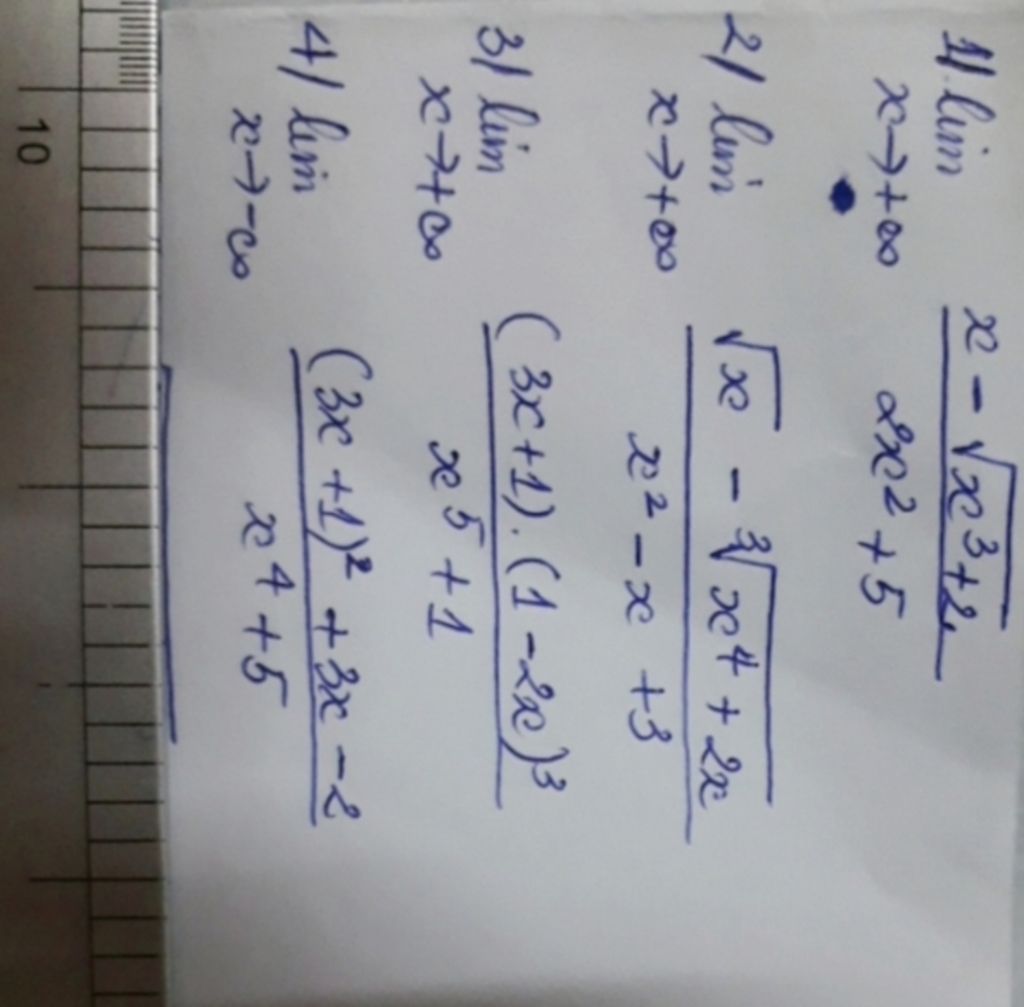 1/ lim x - √x³+2
x→+∞ 2x² + 5
2/ lim √x - ³√x⁴ + 2x
x→+∞ x² - x + 3
3/ lim (3x+1).(1-2x)³
x→+∞ x⁵ + 1
4/ lim (3x+1)² + 3x - 2
x→-∞ x⁴ + 5
10